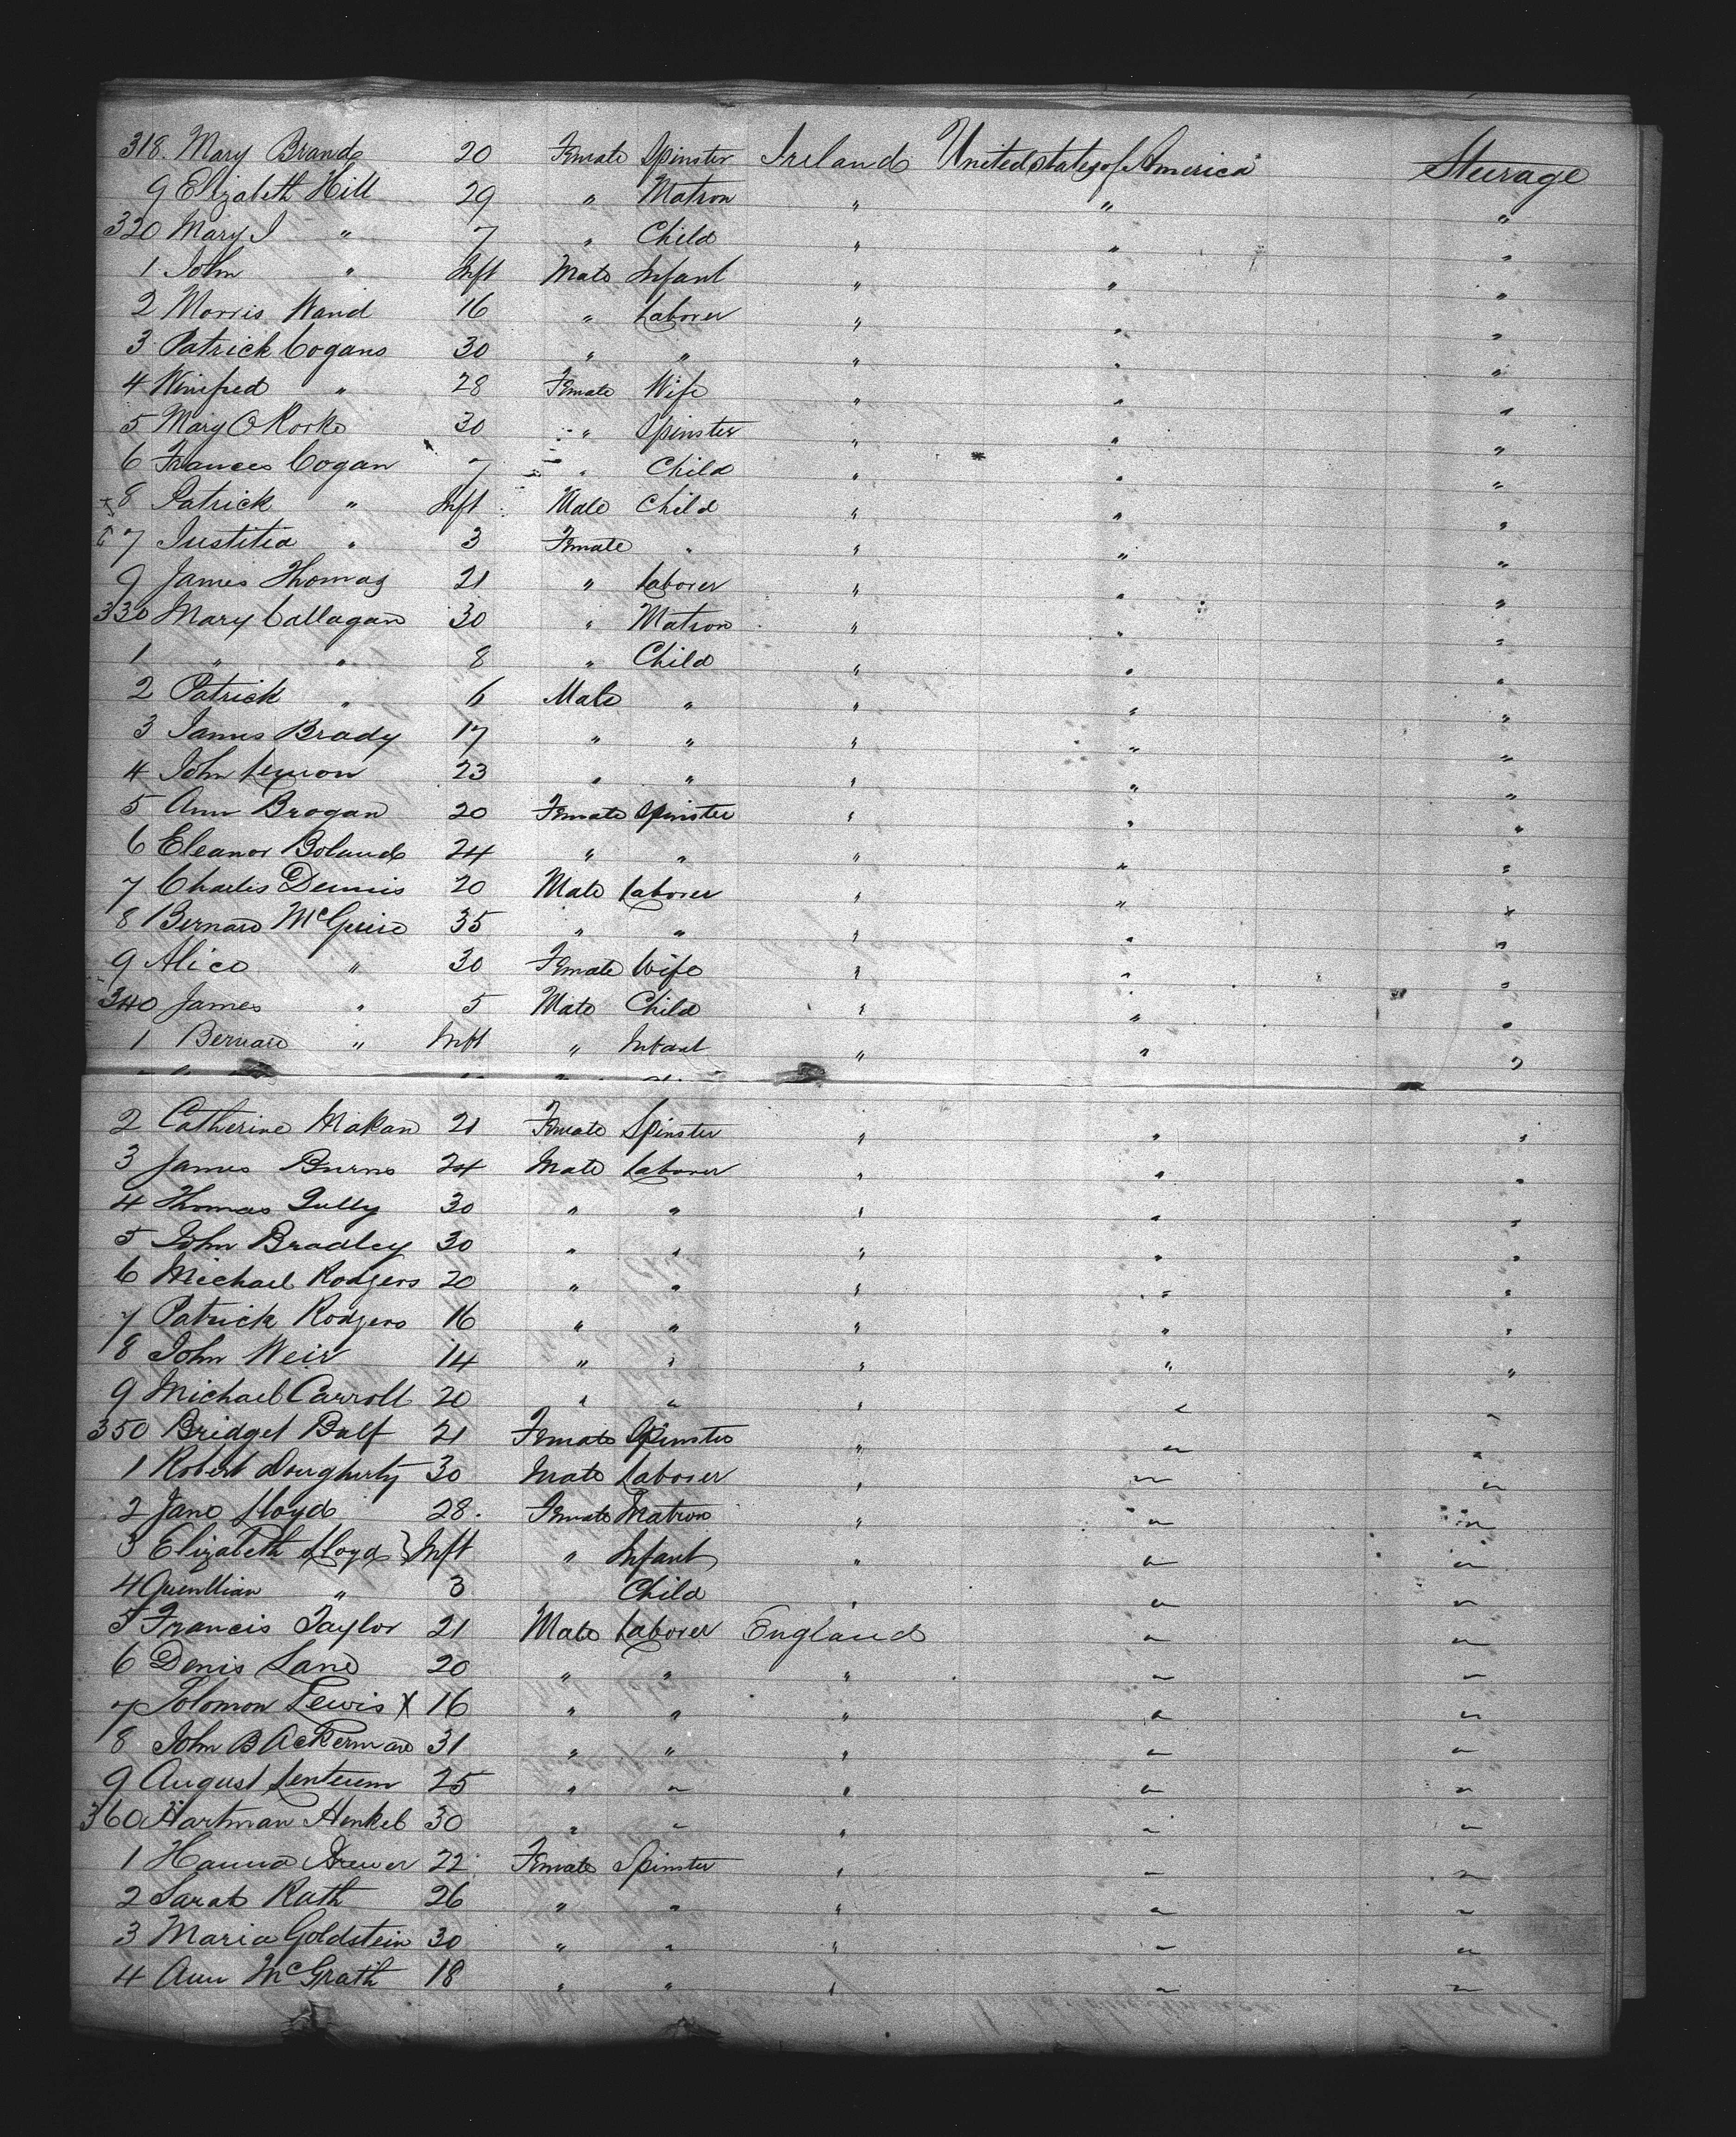 318. Mary Brand 20 Female Spinster Ireland United states of America Steerage
9 Elizabeth Hill 29 " Matron " " "
320 Mary J " 7 " Child " " "
1 John " Inft Male Infant " " "
2 Morris Wand 16 " Laborer " " "
3 Patrick Cogans 30 " " " " "
4 Winifred " 28 Female Wife " " "
5 Mary O Rorke 30 " Spinster " " "
6 Frances Cogan 7 " Child " " "
8 Patrick " Inft Male Child " " "
7 Justitia " 3 Female " " " "
9 James Thomas 21 " Laborer " " "
330 Mary Callagan 30 " Matron " " "
1 " " 8 " Child " " "
2 Patrick " 6 Male " " " "
3 James Brady 17 " " " " "
4 John 23 " " " " "
5 Ann Brogan 20 Female Spinster " " "
6 Eleanor Boland 24 " " " " "
7 Charles Dennis 20 Male Laborer " " "
8 Bernard McGuire 35 " " " " "
9 Alice " 30 Female Wife " " "
340 James " 5 Male Child " " "
1 Bernard " Inft " Infant " " "
2 Catherine Makan 21 Female Spinster " " "
3 James Burns 24 Male Laborer " " "
4 Thomas Tully 30 " " " " "
5 John Bradley 30 " " " " "
6 Michael Rodgers 20 " " " " "
7 Patrick Rodgers 16 " " " " "
8 John Weir 14 " " " " "
9 Michael Carroll 20 " " " " "
350 Bridget Balf 21 Female Spinster " " "
1 Robert Dougherty 30 Male Laborer " " "
2 Jane Lloyd 28. Female Matron " " "
3 Elizabeth Lloyd } Inft " Infant " " "
4 Quenllian " 3 Child " " "
5 Francis Taylor 21 Male Laborer England " "
6 Denis Lane 20 " " " " "
7 Solomon Lewis X 16 " " " " "
8 John B Ackerman 31 " " " " "
9 August 25 " " " " "
360 Hartman Henkel 30 " " " " "
1 Hanna 22 Female Spinster " " "
2 Sarah Rath 26 " " " " "
3 Maria Goldstein 30 " " " " "
4 Ann McGrath 18 " " " " "